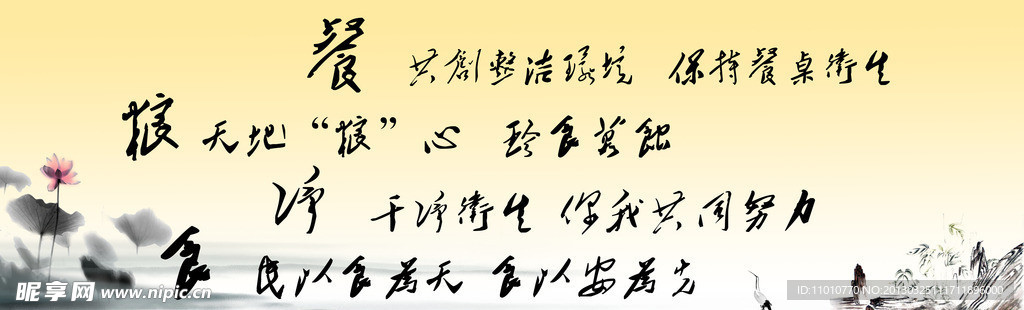 餐 共創整洁環境 保持餐桌衛生
粮 天地“粮”心 珍食莫蝕
净 干净衛生 你我共同努力
食 民以食為天 食以安為先
昵享网 www.nipic.cn
ID:11010770 NO:20130325111711896000